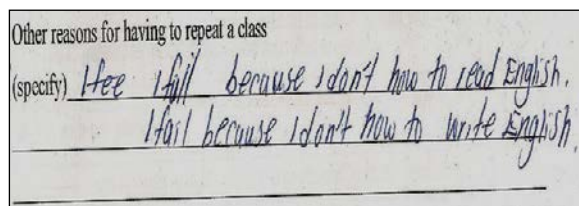 Other reasons for having to repeat a class
(specify) I fee I fail because I don't how to read English.
I fail because I don't how to write English.